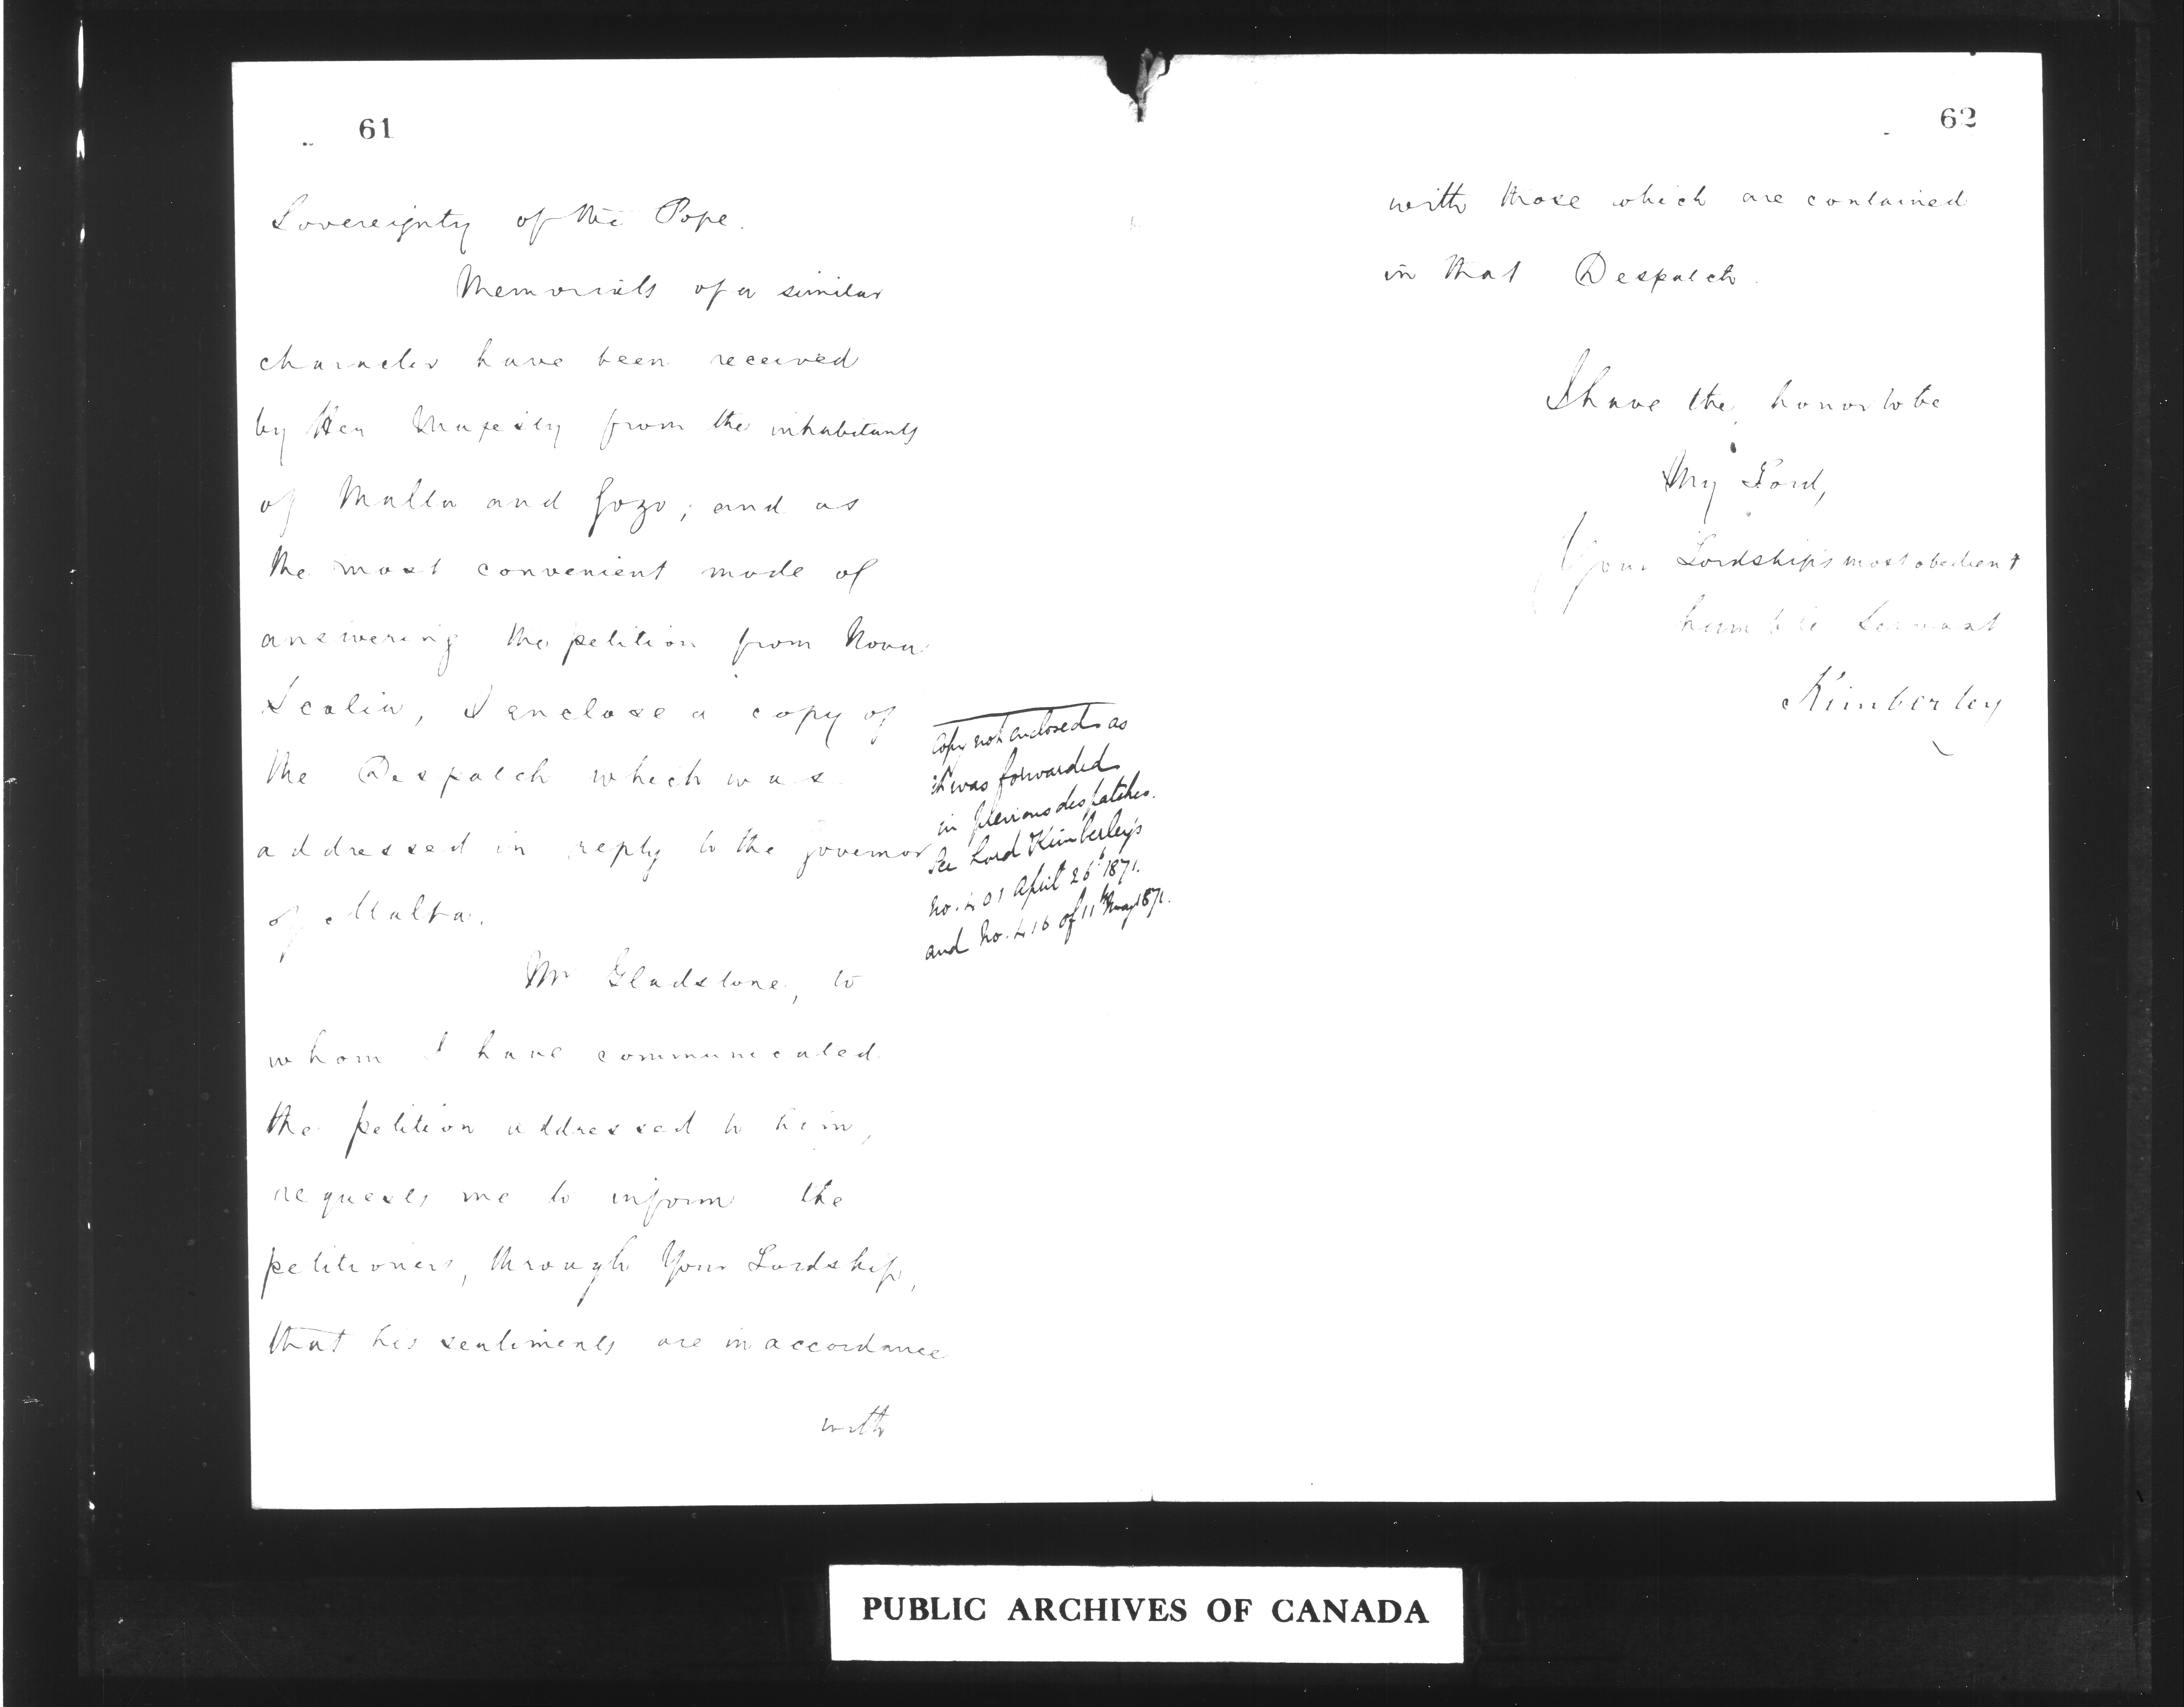 61
Sovereignty of the Pope.
Memorials of a similar
character have been received
by Her Majesty from the inhabitants
of Malta and Gozo; and as
the most convenient mode of
answering the petition from Nova
Scotia, I enclose a copy of
the Despatch which was
addressed in reply to the Governor
of Malta.
Mr Gladstone, to
whom I have communicated
the petition addressed to him,
requests me to inform the
petitioners, through Your Lordship,
that his sentiments are in accordance
with
Copy not enclosed as
it was forwarded
in previous despatches.
See Lord Kimberley's
No. 401 April 26th 1871.
and No. 416 of 11th May 1871.
62
with those which are contained
in that Despatch.
I have the honor to be
My Lord,
Your Lordship's most obedient
humble Servant
Kimberley
PUBLIC ARCHIVES OF CANADA